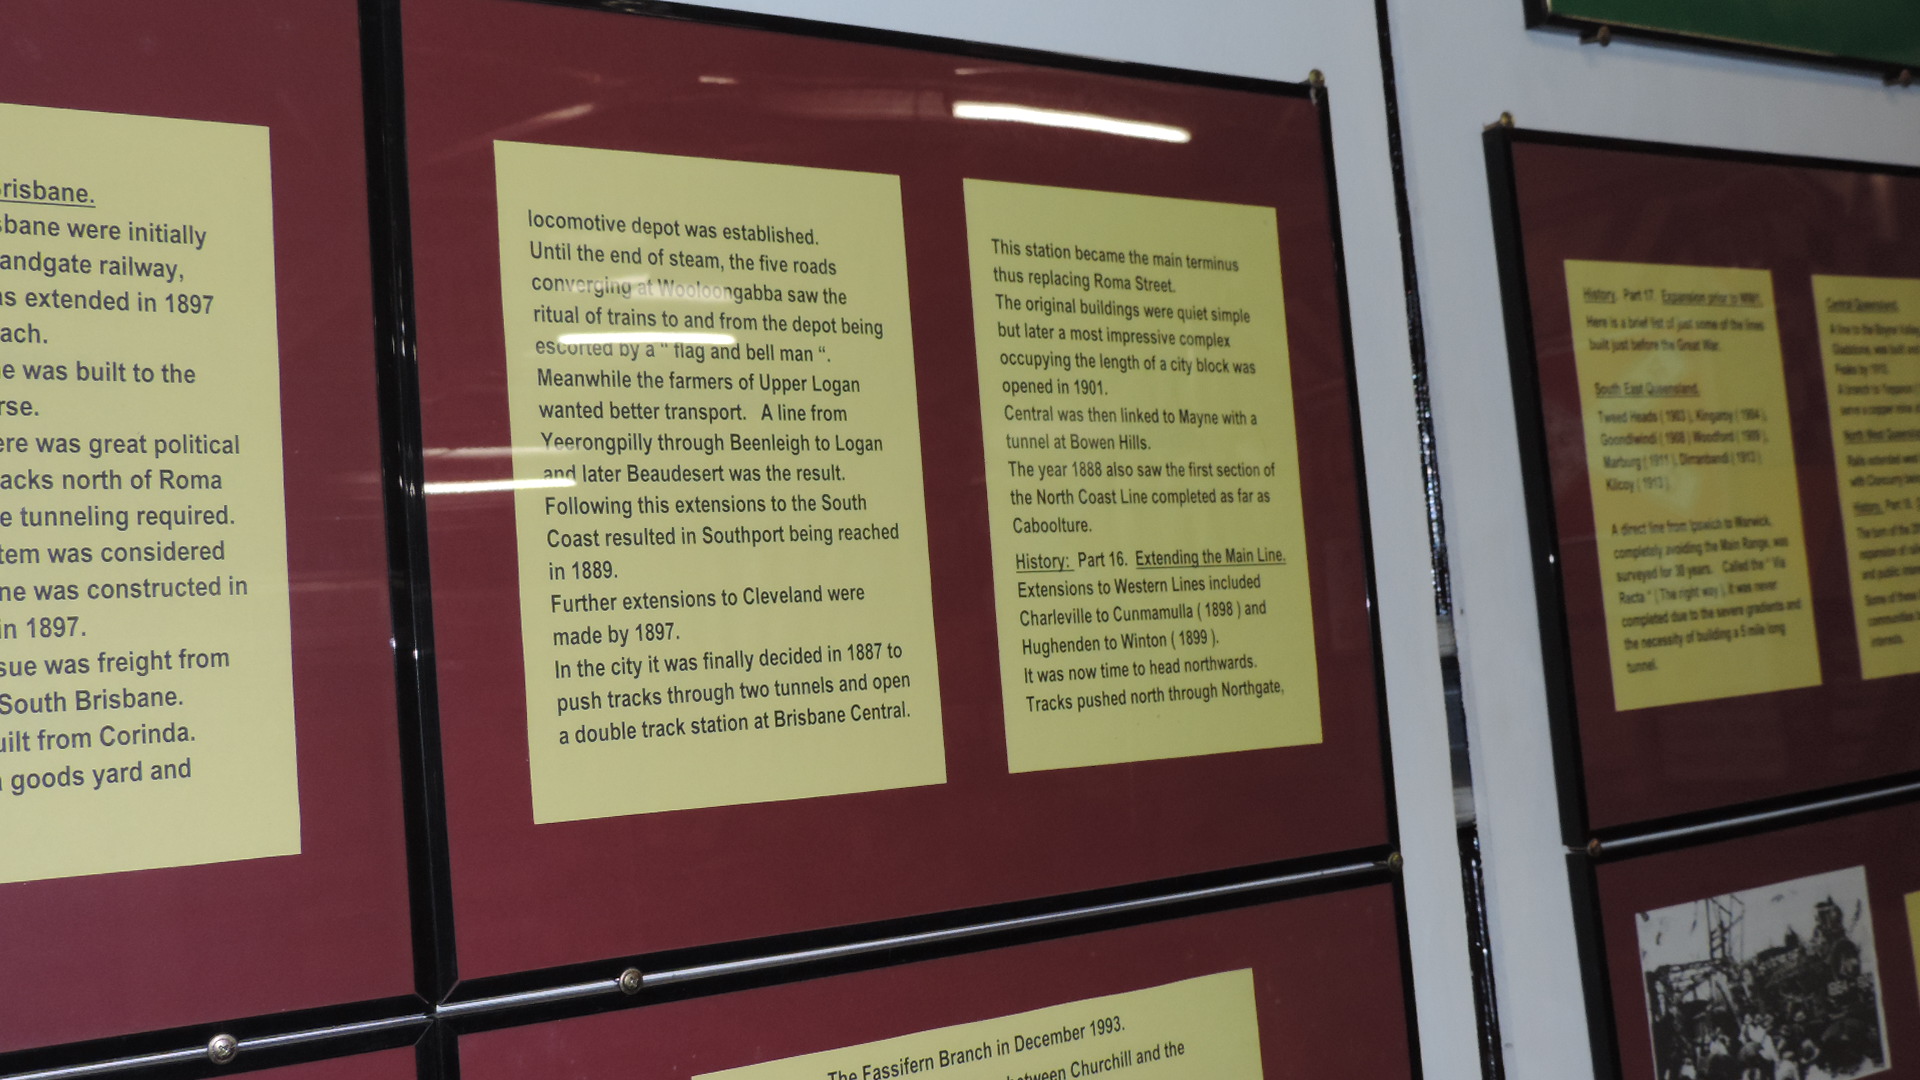 risbane.
sbane were initially
andgate railway,
as extended in 1897
ach.
e was built to the
rse.
ere was great political
acks north of Roma
e tunneling required.
tem was considered
ne was constructed in
in 1897.
sue was freight from
South Brisbane.
uilt from Corinda.
goods yard and
locomotive depot was established.
Until the end of steam, the five roads
converging at Wooloongabba saw the
ritual of trains to and from the depot being
escorted by a " flag and bell man ".
Meanwhile the farmers of Upper Logan
wanted better transport. A line from
Yeerongpilly through Beenleigh to Logan
and later Beaudesert was the result.
Following this extensions to the South
Coast resulted in Southport being reached
in 1889.
Further extensions to Cleveland were
made by 1897.
In the city it was finally decided in 1887 to
push tracks through two tunnels and open
a double track station at Brisbane Central.
This station became the main terminus
thus replacing Roma Street.
The original buildings were quiet simple
but later a most impressive complex
occupying the length of a city block was
opened in 1901.
Central was then linked to Mayne with a
tunnel at Bowen Hills.
The year 1888 also saw the first section of
the North Coast Line completed as far as
Caboolture.
History: Part 16. Extending the Main Line.
Extensions to Western Lines included
Charleville to Cunmamulla ( 1898 ) and
Hughenden to Winton ( 1899 ).
It was now time to head northwards.
Tracks pushed north through Northgate,
History. Part 17. Expansion prior to WW1.
Here is a brief list of just some of the lines
built just before the Great War.
South East Queensland.
Tweed Heads ( 1903 ), Kingaroy ( 1904 ),
Goondiwindi ( 1908 ) Woodford ( 1909 ),
Marburg ( 1911 ), Dirranbandi ( 1913 )
Kilcoy ( 1913 ).
A direct line from Ipswich to Warwick,
completely avoiding the Main Range, was
surveyed for 30 years. Called the " Via
Recta " ( The right way ), it was never
completed due to the severe gradients and
the necessity of building a 5 mile long
tunnel.
Central Queensland.
A line to the Boyne Valley
Gladstone, was built
North West Queensland
Rails extended west
History. Part 18.
The turn of the 20
and public
Some of these
communities
interests.
The Fassifern Branch in December 1993.
between Churchill and the